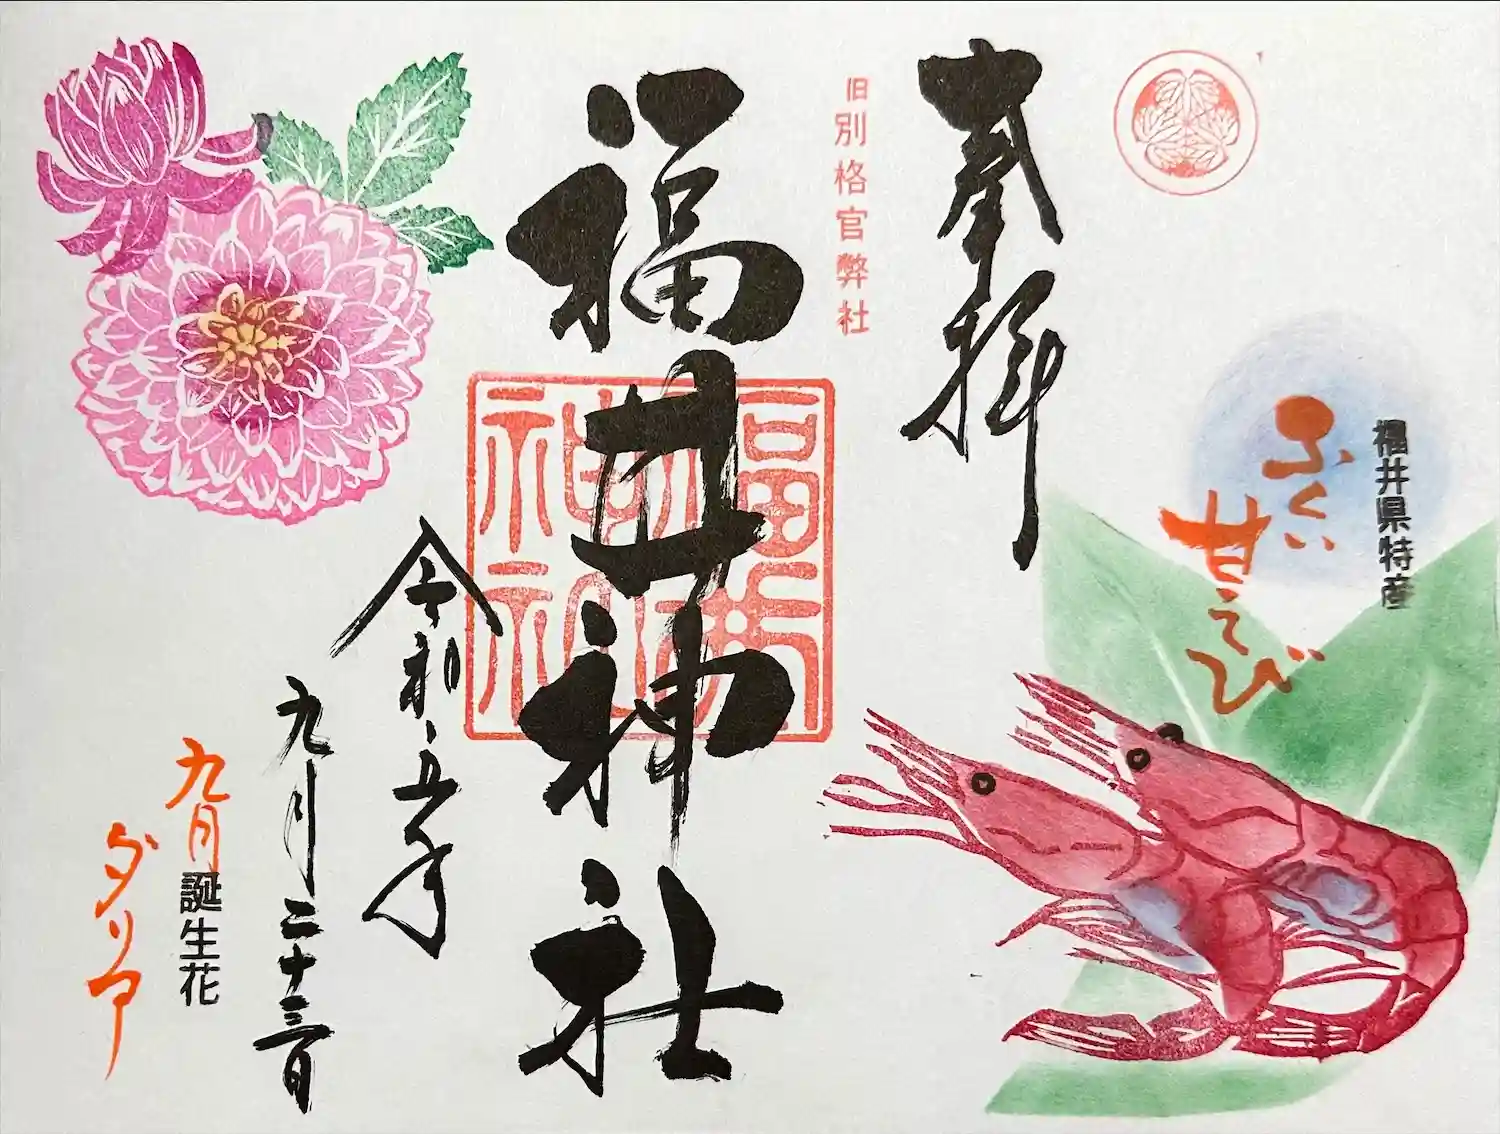 奉拝
福井県特産
ふくい
甘えび
旧別格官弊社
福井神社
福井
神社
令和五年
九月二十三日
九月誕生花
ダリア